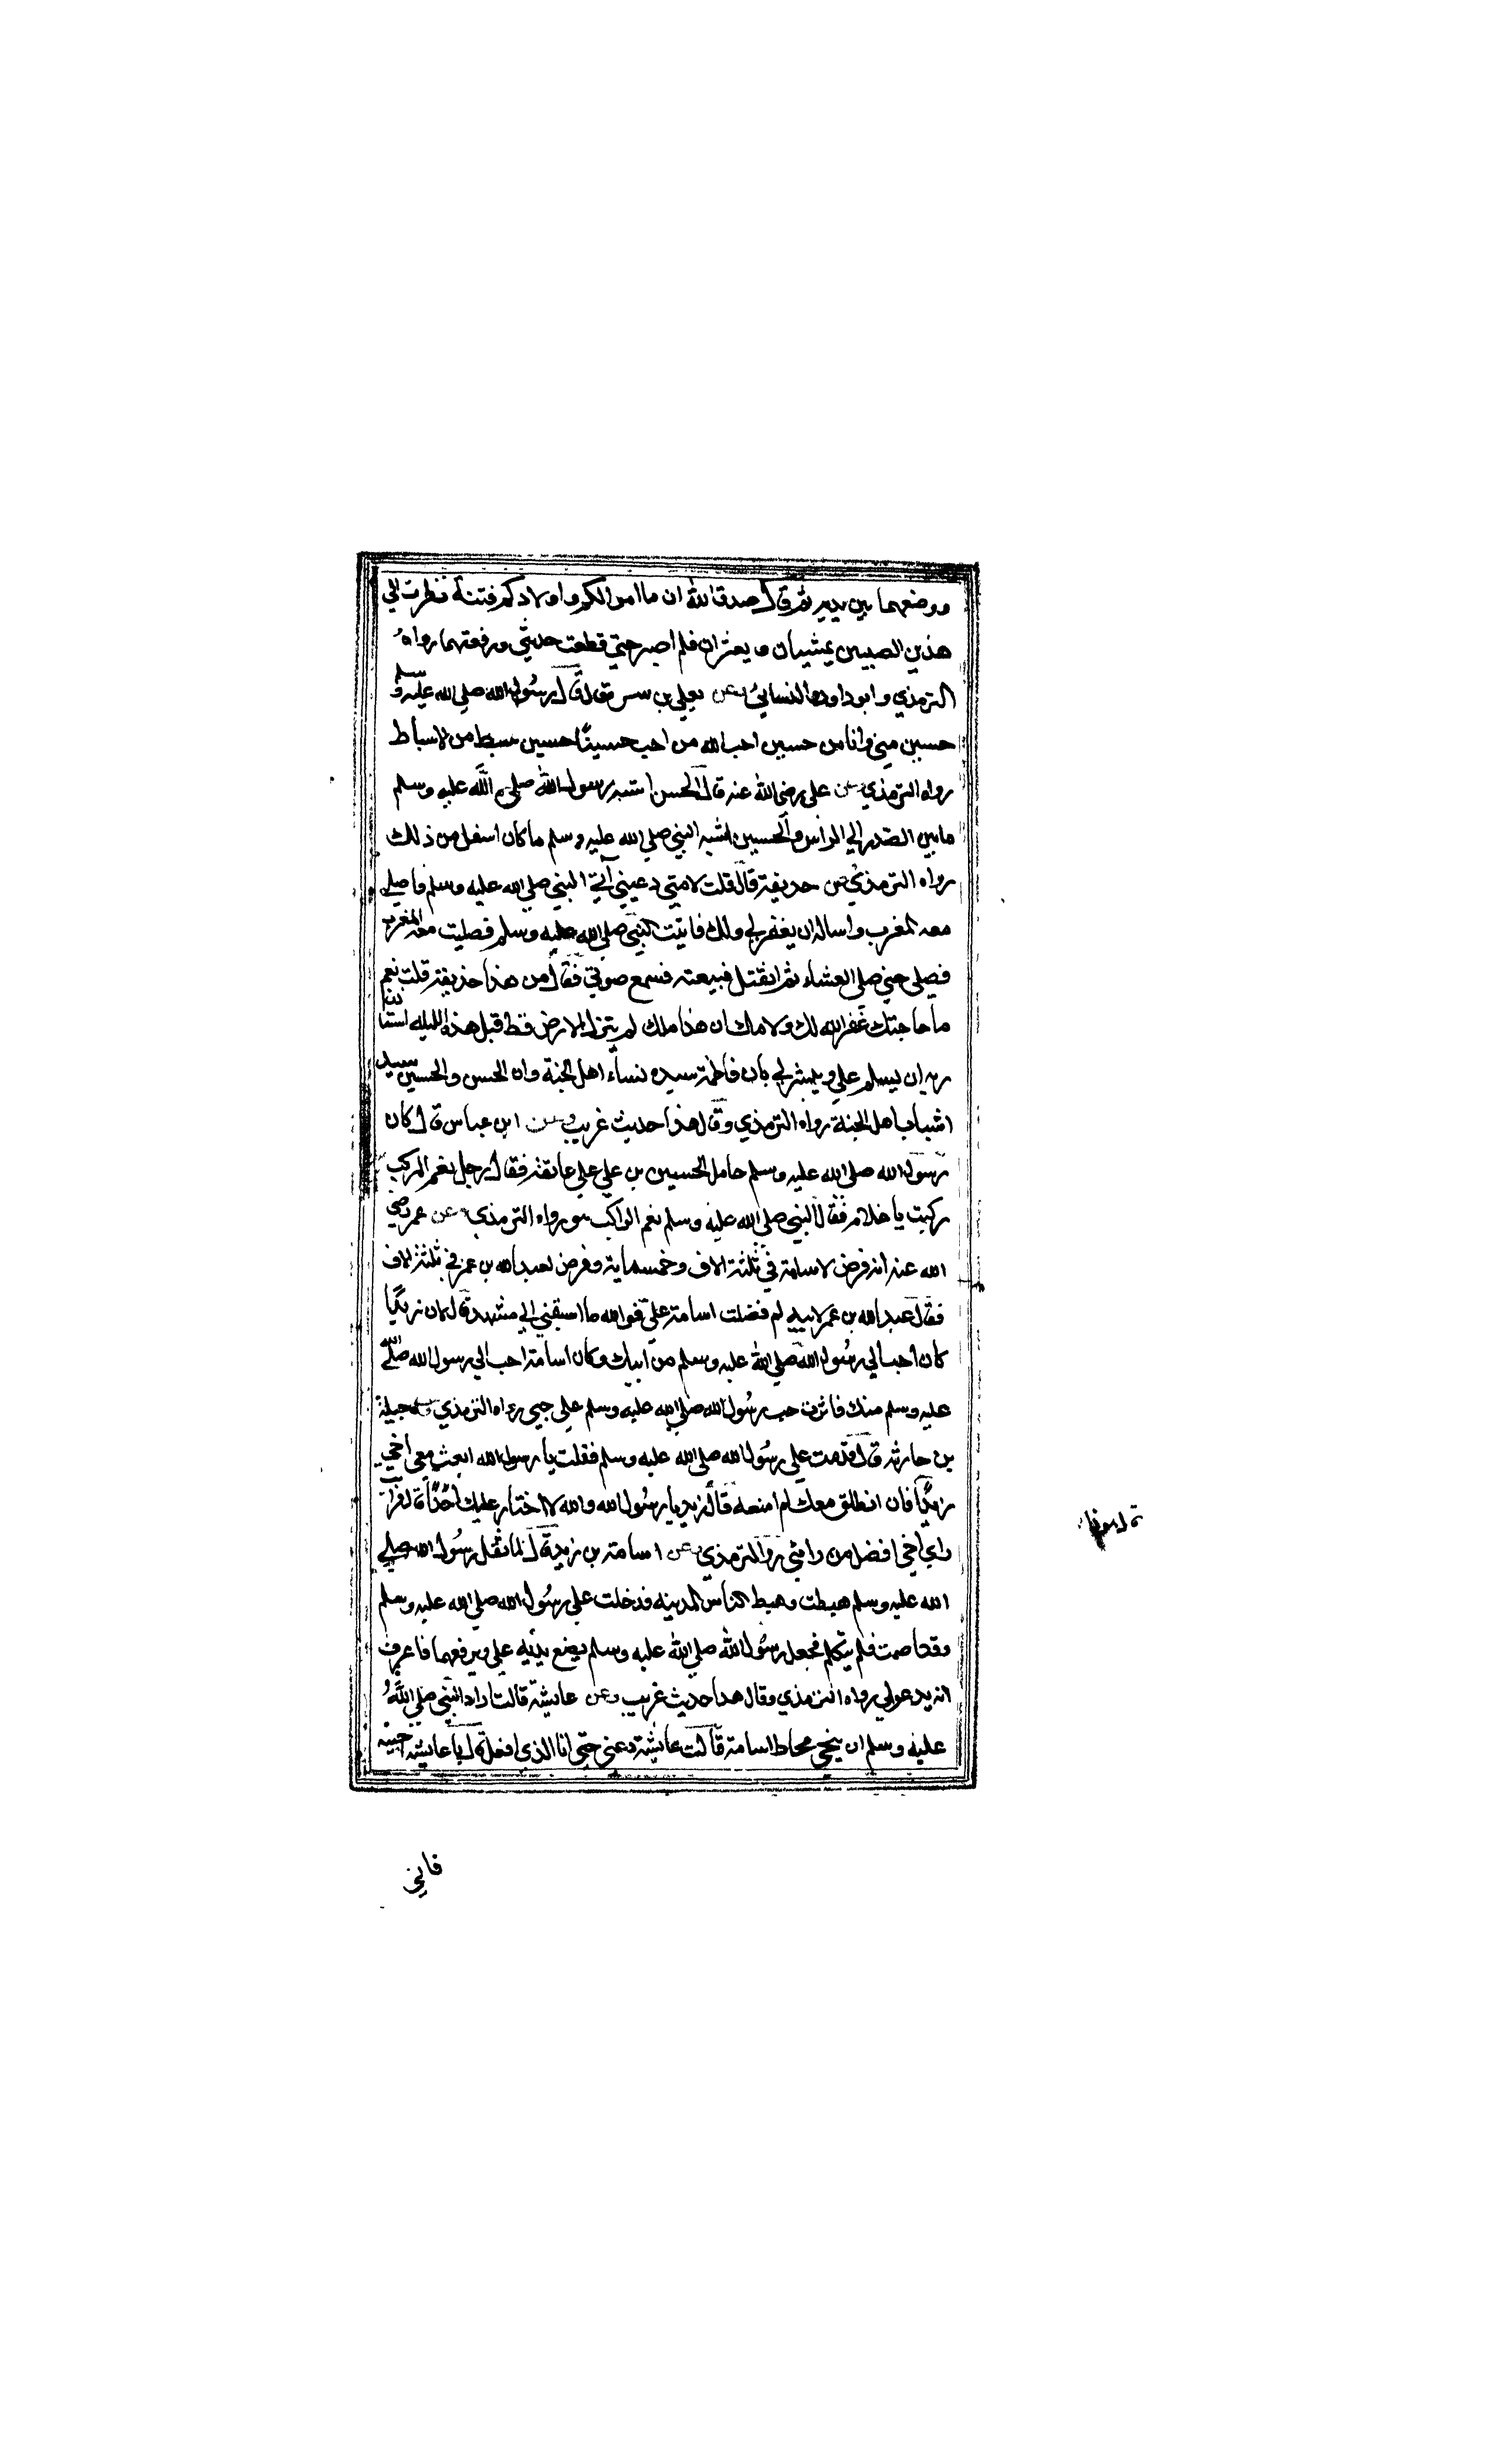 ووضعهما بين يديه ثم قال صدق الله ان ما اموالكم واولادكم فتنة نظرت الي
هذين الصبيين يمشيان ويعثران فلم اصبر حتي قطعت حديثي ورفعتهما رواه
الترمذي وابو داود والنسائي وعن يعلي بن مرة قال قال رسول الله صلي الله عليه وسلم
حسين مني وانا من حسين احب الله من احب حسينا حسين سبط من الاسباط
رواه الترمذي وعن علي رضي الله عنه قال الحسن اشبه رسول الله صلي الله عليه وسلم
ما بين الصدر الي الراس والحسين اشبه النبي صلي الله عليه وسلم ما كان اسفل من ذلك
رواه الترمذي وعن حذيفة قال قلت لامتي دعيني آتي النبي صلي الله عليه وسلم فاصلي
معه المغرب واساله ان يغفر لي ولك فاتيت النبي صلي الله عليه وسلم فصليت معه المغرب
فصلي حتي صلي العشاء ثم انفتل فتبعته فسمع صوتي فقال من هذا حذيفة قلت نعم
ما حاجتك غفر الله لك ولامك ان هذا ملك لم ينزل الارض قط قبل هذه الليله استاذن
ربه ان يسلم علي ويبشرلي بان فاطمة سيده نساء اهل الجنة وان الحسن والحسين سيد
اشباب اهل الجنة رواه الترمذي وقال هذا حديث غريب وعن ابن عباس قال كان
رسول الله صلي الله عليه وسلم حامل الحسين بن علي علي عاتقه فقال رجل نعم المركب
ركبت يا غلام فقال النبي صلي الله عليه وسلم نعم الراكب هو رواه الترمذي وعن عمر رضي
الله عنه انه فرض لاسامة في ثلثة الاف وخمسماية وفرض لعبد الله بن عمر في ثلثة الاف
فقال عبد الله بن عمر لابيه لم فضلت اسامة علي فوالله ما استقني الي مشهد قال لان زيدا
كان احب الي رسول الله صلي الله عليه وسلم من ابيك وكان اسامة احب الي رسول الله صلي الله
عليه وسلم منك فاثرت حب رسول الله صلي الله عليه وسلم علي حبي رواه الترمذي وعن جبلة
بن حارثه قال قدمت علي رسول الله صلي الله عليه وسلم فقلت يا رسول الله ابعث معي اخي
زيدا فان انطلق معك لم امنعه قال زيد يا رسول الله والله لا اختار عليك احدا قال فرايت
راي اخي افضل من رايي رواه الترمذي وعن اسامة بن زيد قال لما ثقل رسول الله صلي
الله عليه وسلم هبطت وهبط الناس المدينه فدخلت علي رسول الله صلي الله عليه وسلم
وقد اصمت فلم يتكلم فجعل رسول الله صلي الله عليه وسلم يضع يديه علي ويرفعهما فاعرف
انه يدعو لي رواه الترمذي وقال هذا حديث غريب وعن عايشة قالت اراد النبي صلي الله
عليه وسلم ان ينحي مخاط اسامة قالت عايشة دعني حتي انا الذي افعل قال يا عايشه احبيه
فاني